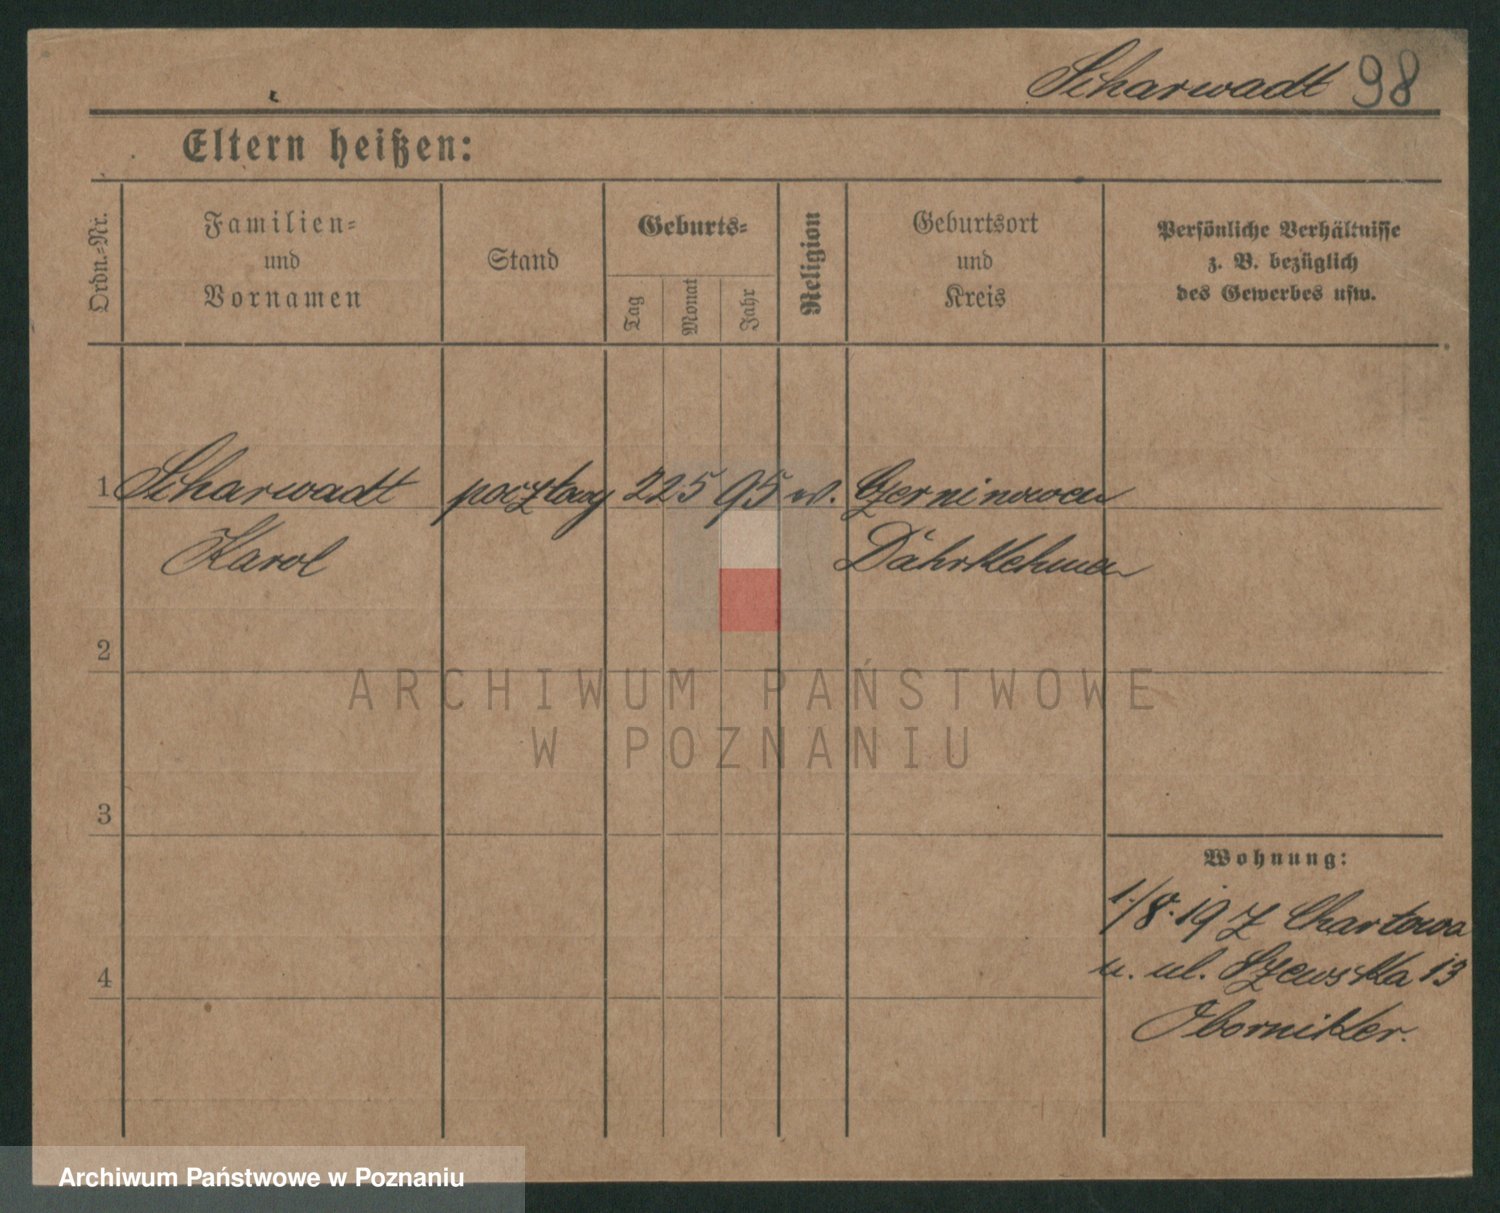 Scharwadt 98
Eltern heißen:
Ordn.-Nr.
Familien-
und
Vornamen
Stand
Geburts-
Tag
Monat
Jahr
Religion
Geburtsort
und
Kreis
Persönliche Verhältnisse
z. B. bezüglich
des Gewerbes usw.
1 Scharwadt pocztowy 22 5 95 w. Czerninowen
Karol
2
3
4
Wohnung:
1./8.19 z Chartowa
u. ul. Szewska 13
Obornikler.
ARCHIWUM PAŃSTWOWE
W POZNANIU
Archiwum Państwowe w Poznaniu